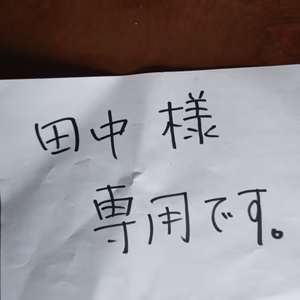 田中様
専用です。